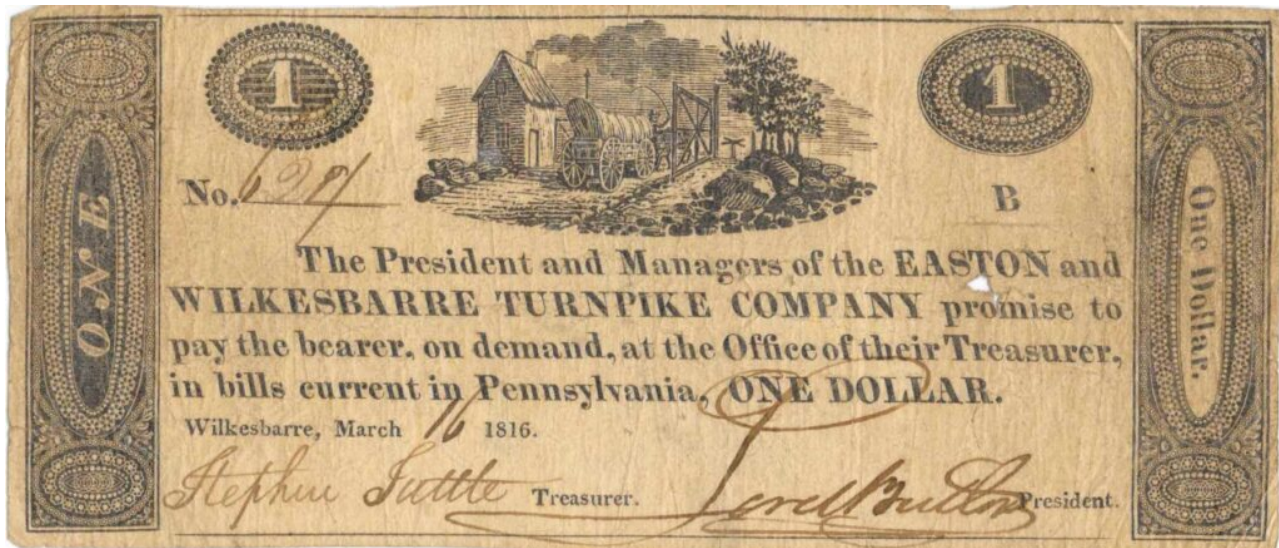 1
1
No.
B
ONE
One Dollar.
The President and Managers of the EASTON and
WILKESBARRE TURNPIKE COMPANY promise to
pay the bearer, on demand, at the Office of their Treasurer,
in bills current in Pennsylvania, ONE DOLLAR.
Wilkesbarre, March 16 1816.
Stephen Tuttle Treasurer. President.